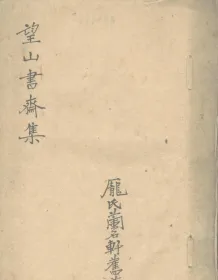 望山書齋集
龐氏蘭石軒舊